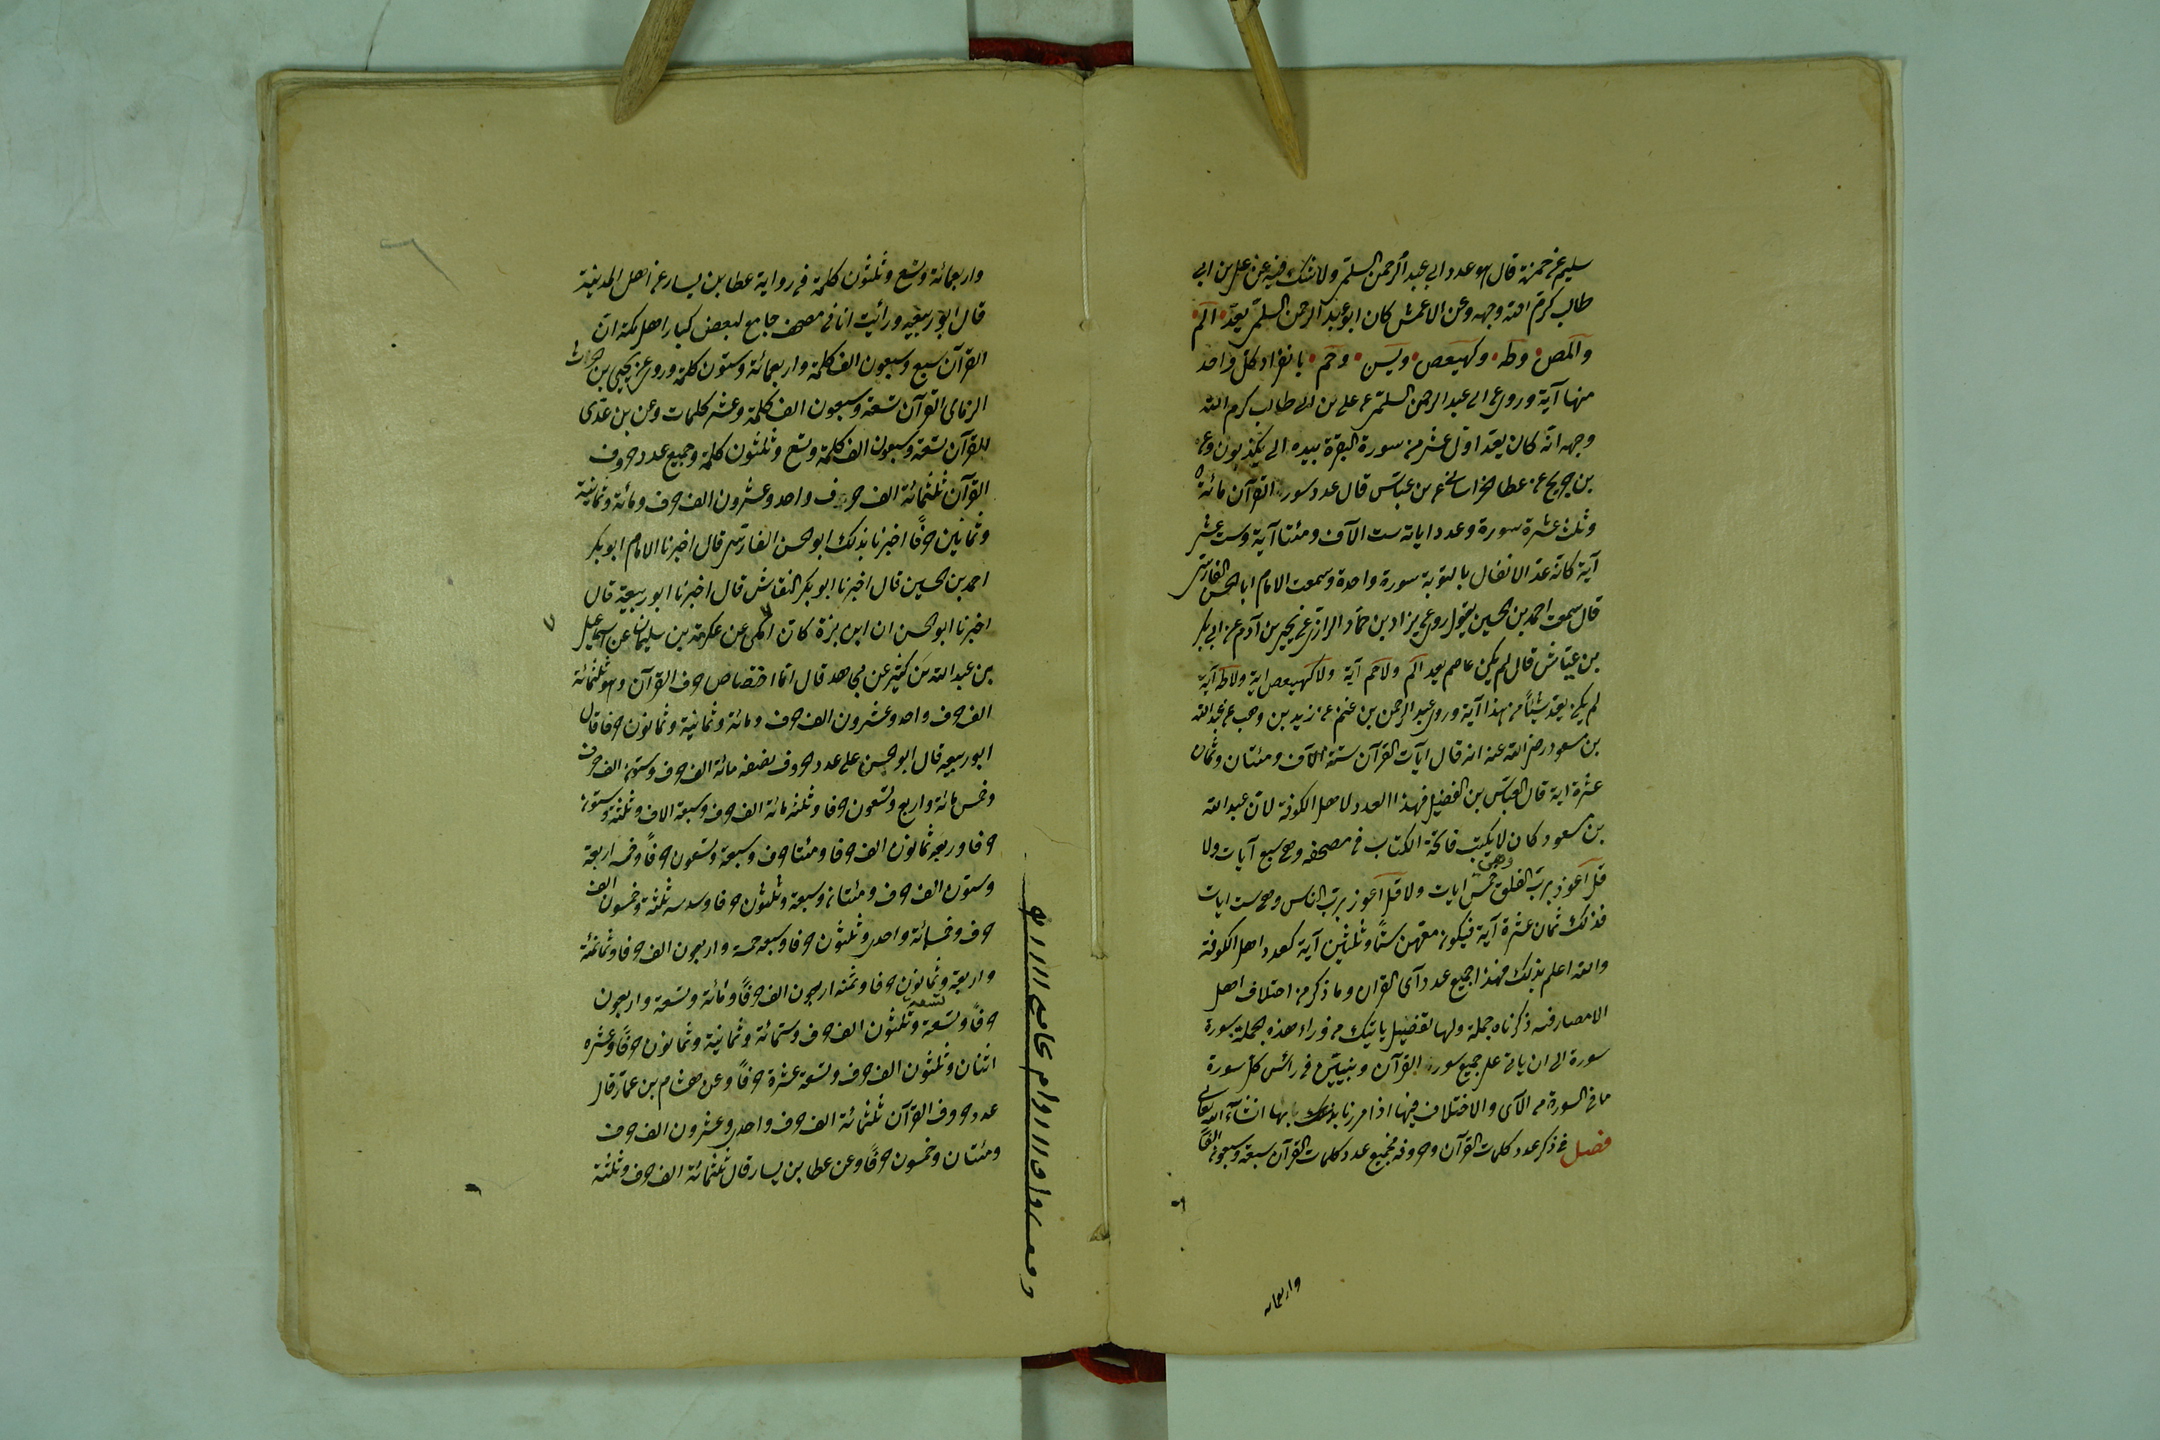 سليم عن حمزة قال هو عدد ابي عبد الرحمن السلمي ولا شك فيه عن علي بن ابي
طالب كرم الله وجهه وعن الاعمش كان ابو عبد الرحمن السلمي يعد الم
والمص وطه وكهيعص ويس وحم بانفراد كل واحد
منها آية وروى عن ابي عبد الرحمن السلمي عن علي بن ابي طالب كرم الله
وجهه انه كان يعد اول عشر من سورة البقرة بيده الى يكذبون وعن
بن جريج عن عطا الخراساني عن بن عباس قال عدد سور القرآن مائة
وثلث عشرة سورة وعدد اياته ست الآف ومئتا آية وست عشر
آية كانه عد الانفال بالتوبة سورة واحدة وسمعت الامام ابا الحسن الفارسي
قال سمعت احمد بن الحسين يقول روى يزداد بن حماد الرازي عن يحيى بن آدم عن ابي بكر
بن عياش قال لم يكن عاصم يعد الم ولا حم آية ولا كهيعص اية ولا طه آية
لم يكن يعد شيئاً من هذا آية وروى عبد الرحمن بن غنم عن زيد بن وهب عن عبد الله
بن مسعود رضي الله عنه انه قال آيات القرآن ستة الآف ومئتان وثمان
عشرة اية قال العباس بن الفضيل فهذا العدد لاهل الكوفة لان عبد الله
بن مسعود كان لا يكتب فاتحة الكتاب في مصحفه وهي سبع آيات ولا
قل آعوذ برب الفلق وهي خمس ايات ولا قل آعوذ برب الناس وهي ست ايات
فذلك ثمان عشرة آية فيكون معهن ستًا وثلثين آية كعدد اهل الكوفة
والله اعلم بذلك فهذا جميع عدد آى القران وما ذكر من اختلاف اهل
الامصار فيه ذكرناه جملة ولها تفضيل ياتيك من وراء هذه الجملة سورة
سورة الى ان ياتي على جميع سور القرآن ونبيّن في رأس كل سورة
ما في السورة من الآى والاختلاف فيها اذا مررنا بها انشآء الله تعالى
فصل في ذكر عدد كلمات القرآن وحروفه فجميع عدد كلمات القرآن سبعة وسبعون الفاً
واربعمائه
واربعمائة وتسع وثلثون كلمة في رواية عطا بن يسار عن اهل المدينة
قال ابو ربيعه ورأيت انا في مصحف جامع لبعض كبار اهل مكة ان
القرآن سبع وسبعون الف كلمة واربعمائة وستون كلمة وروى عن يحيى بن
الزمارى القرآن تسعة وسبعون الف كلمة وعشر كلمات وعن بن عدى
للقرآن تسعة وسبعون الف كلمة وتسع وثلثون كلمة وجميع عدد حروف
القرآن ثلثمائة الف حرف واحد وعشرون الف حرف ومائة وثمانية
وثمانين حرفًا اخبرنا بذلك ابو الحسن الفارسي قال اخبرنا الامام ابو بكر
احمد بن الحسين قال اخبرنا ابو بكر النقاش قال اخبرنا ابو ربيعة قال
اخبرنا ابو الحسن ان ابن بزة كان المكى عن عكرمة بن سليمان عن اسماعيل
بن عبد الله بن كثير عن مجاهد قال اما حروف القرآن وهو ثلثمائة
الف حرف واحد وعشرون الف حرف ومائة وثمانية وثمانون حرفا قال
ابو ربيعه قال ابو الحسن على عدد حروف نصفه مائة الف حرف وستون الف حرف
وخمس مائة واربع وتسعون حرفا وثلثه مائة الف حرف وسبعة الاف وثلثة وستون
حرفا وربعه ثمانون الف حرفا ومئتا حرف وسبعة وتسعون حرفًا وخمسه اربعة
وستون الف حرف ومئتان وسبعة وثلثون حرفا وسدسه ثلثة وخمسون الف
حرف وخمسمائة واحدى وثلثون حرفا وسبعه خمسة واربعون الف حرفا وثمانمئة
واربعة وثمانون حرفا وثمنه اربعون الف حرفًا ومائة وتسعة واربعون
حرفًا وتسعه وثلثون الف حرف وستمائة وثمانية وثمانون حرفًا وعشره
اثنان وثلثون الف حرف وتسعة عشرة حرفًا وعن هشام بن عمار قال
عدد حروف القرآن ثلثمائة الف حرف واحدى وعشرون الف حرف
ومئتان وخمسون حرفًا وعن عطا بن يسار قال ثلثمائة الف حرف وثلثة